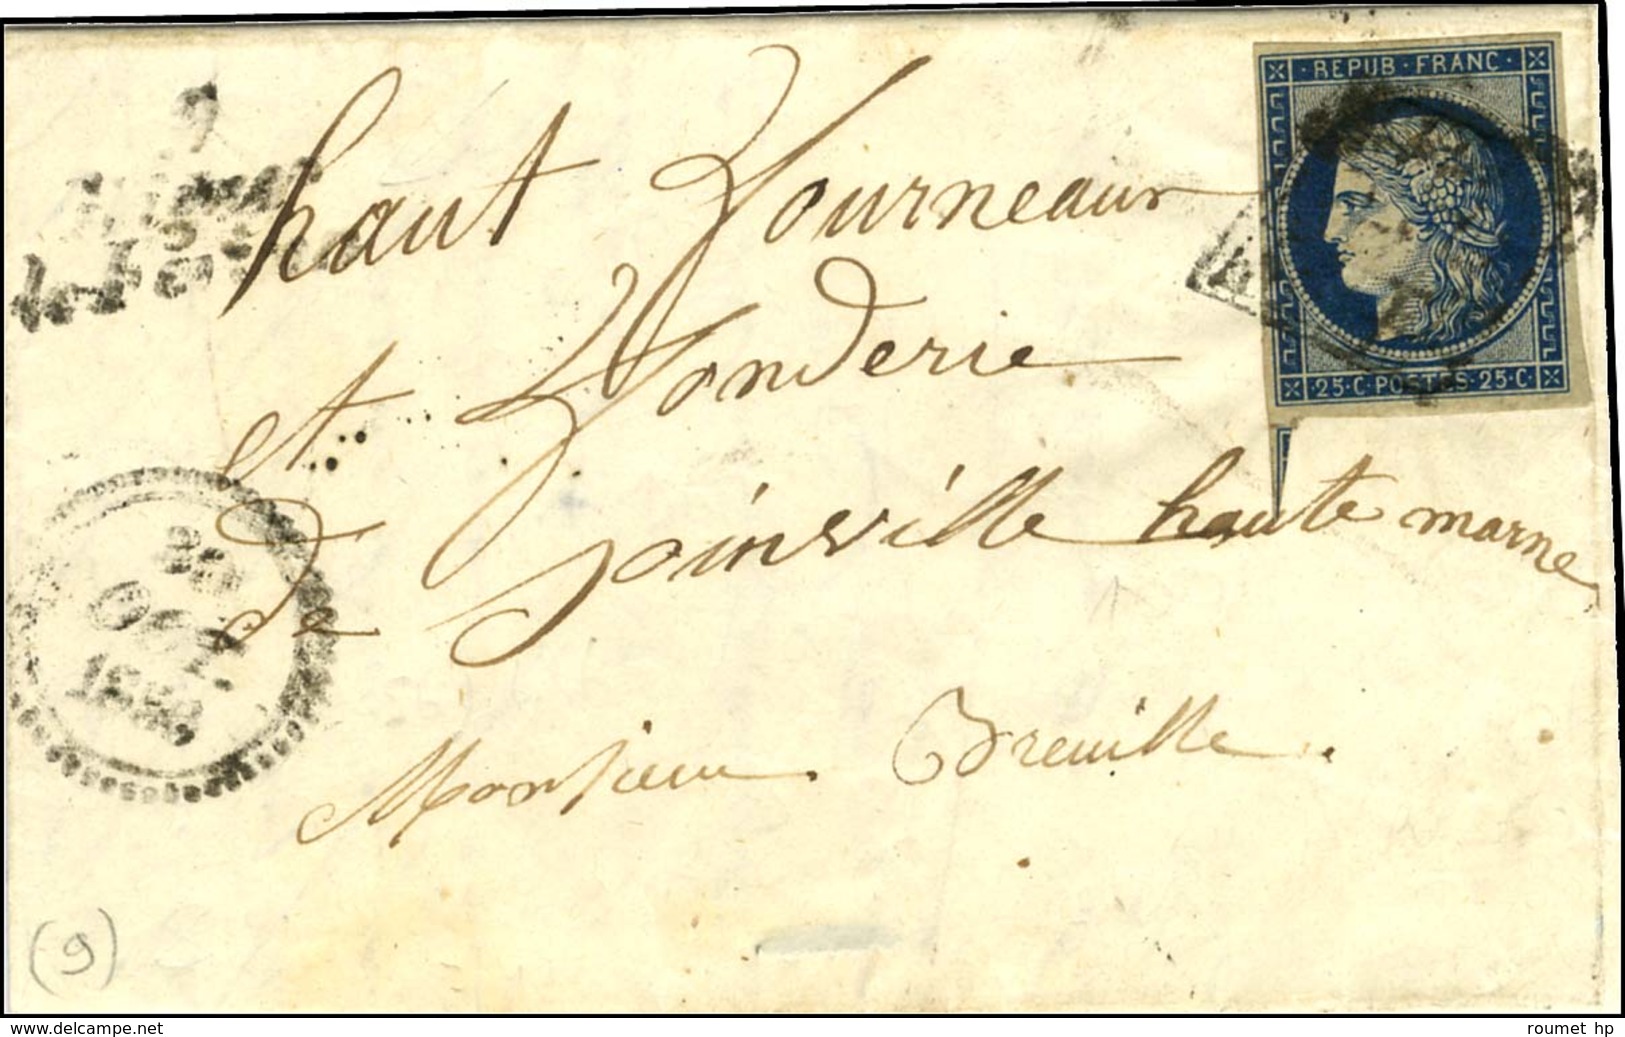 REPUB · FRANC ·
25 · C · POSTES · 25 · C
haut Fourneaux
et Fonderie
de Joinville haute marne
Monsieur Breuille
OCT.
(9)
www.delcampe.net
roumet hp